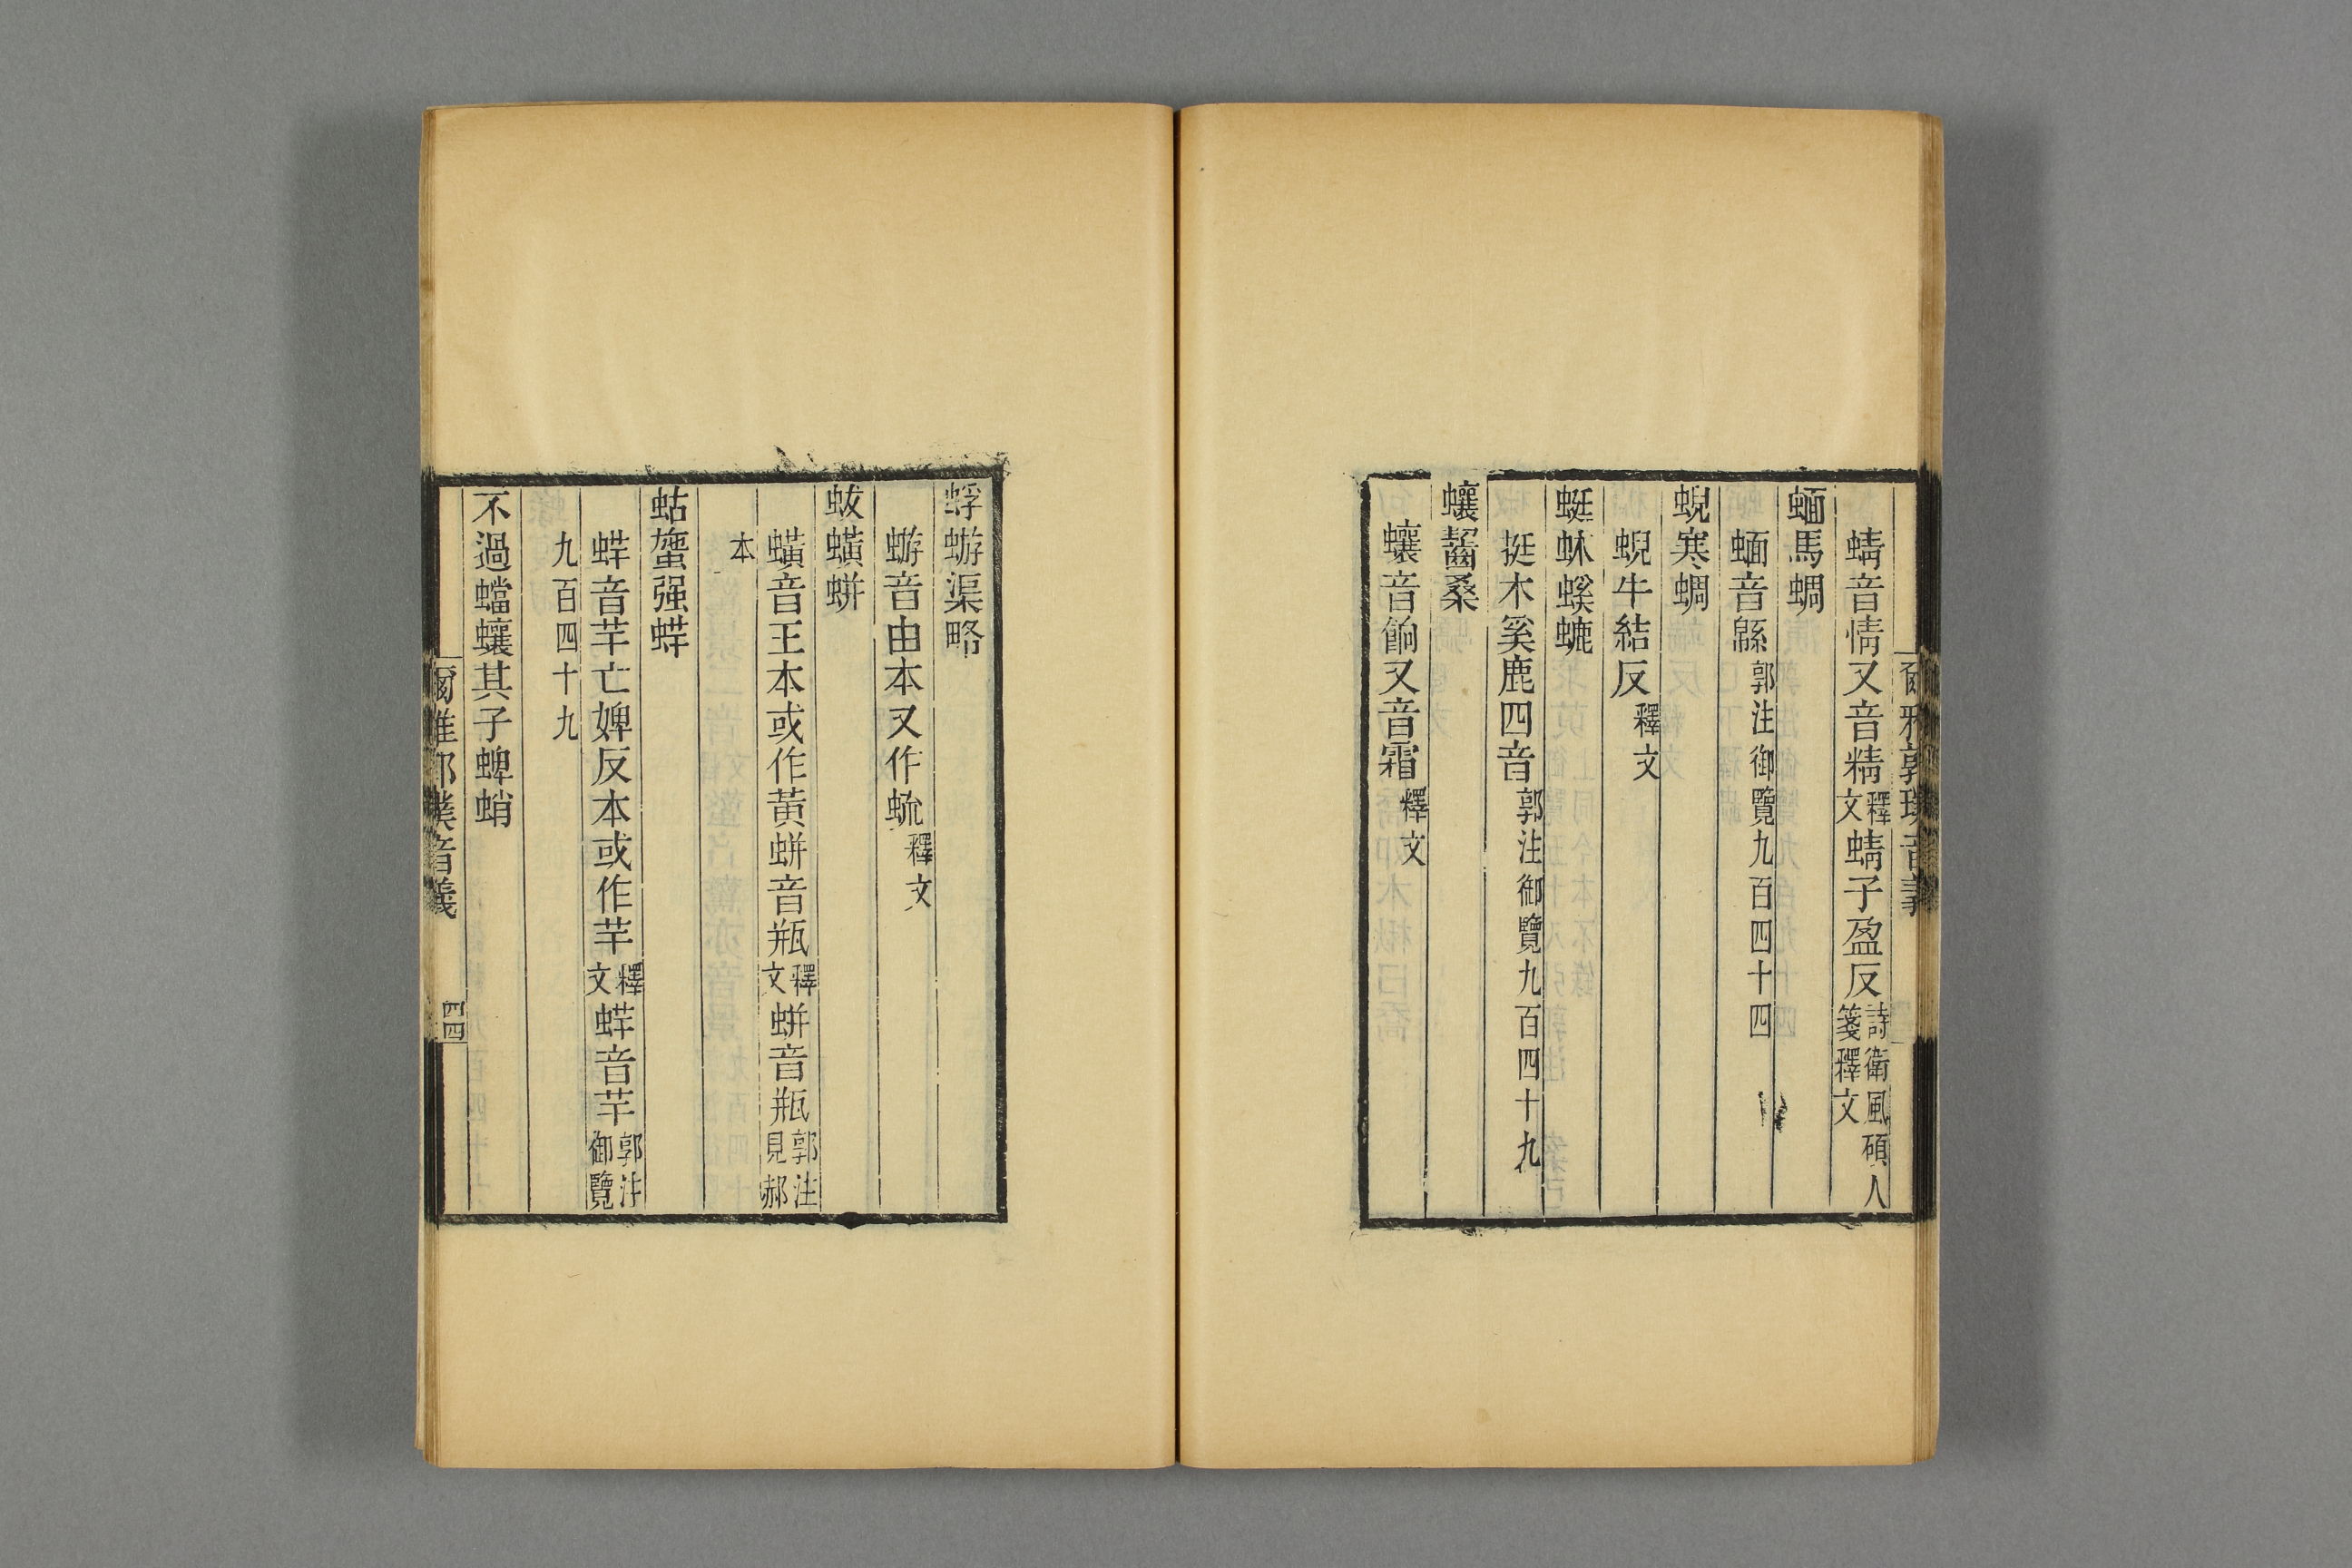 爾雅郭璞音義
蜻音情又音精釋文蜻子盈反詩衛風碩人箋釋文
蝒馬蜩
蝒音緜郭注御覽九百四十四
蜺寒蜩
蜺牛結反釋文
蜓蚞螇螰
挺木奚鹿四音郭注御覽九百四十九
蠰齧桑
蠰音餉又音霜釋文
蜉蝣渠略
蝣音由本又作蜉釋文
蛂蟥蛢
蟥音王本或作黃蛢音瓶釋文蛢音瓶郭注見郝
本
蛄䗐强蛘
蛘音芊亡婢反本或作芊釋文蛘音芊郭注御覽
九百四十九
不過蟷蠰其子蜱蛸
爾雅郭璞音義
四四